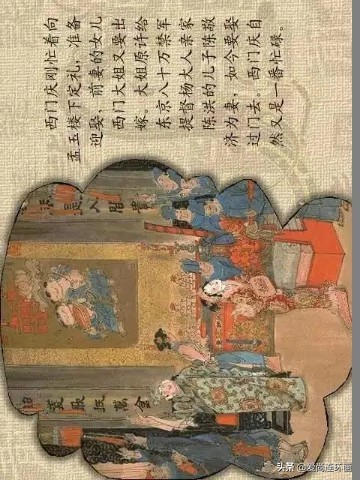 西门庆刚忙着向
孟玉楼下定礼，准备
迎娶，前妻的女儿
西门大姐又要出
嫁。大姐原许给
东京八十万禁军
提督杨大人亲家
陈洪的儿子陈敬
济为妻，如今要娶
过门去。西门庆自
然又是一番忙碌。
头条 @爱尚连环画